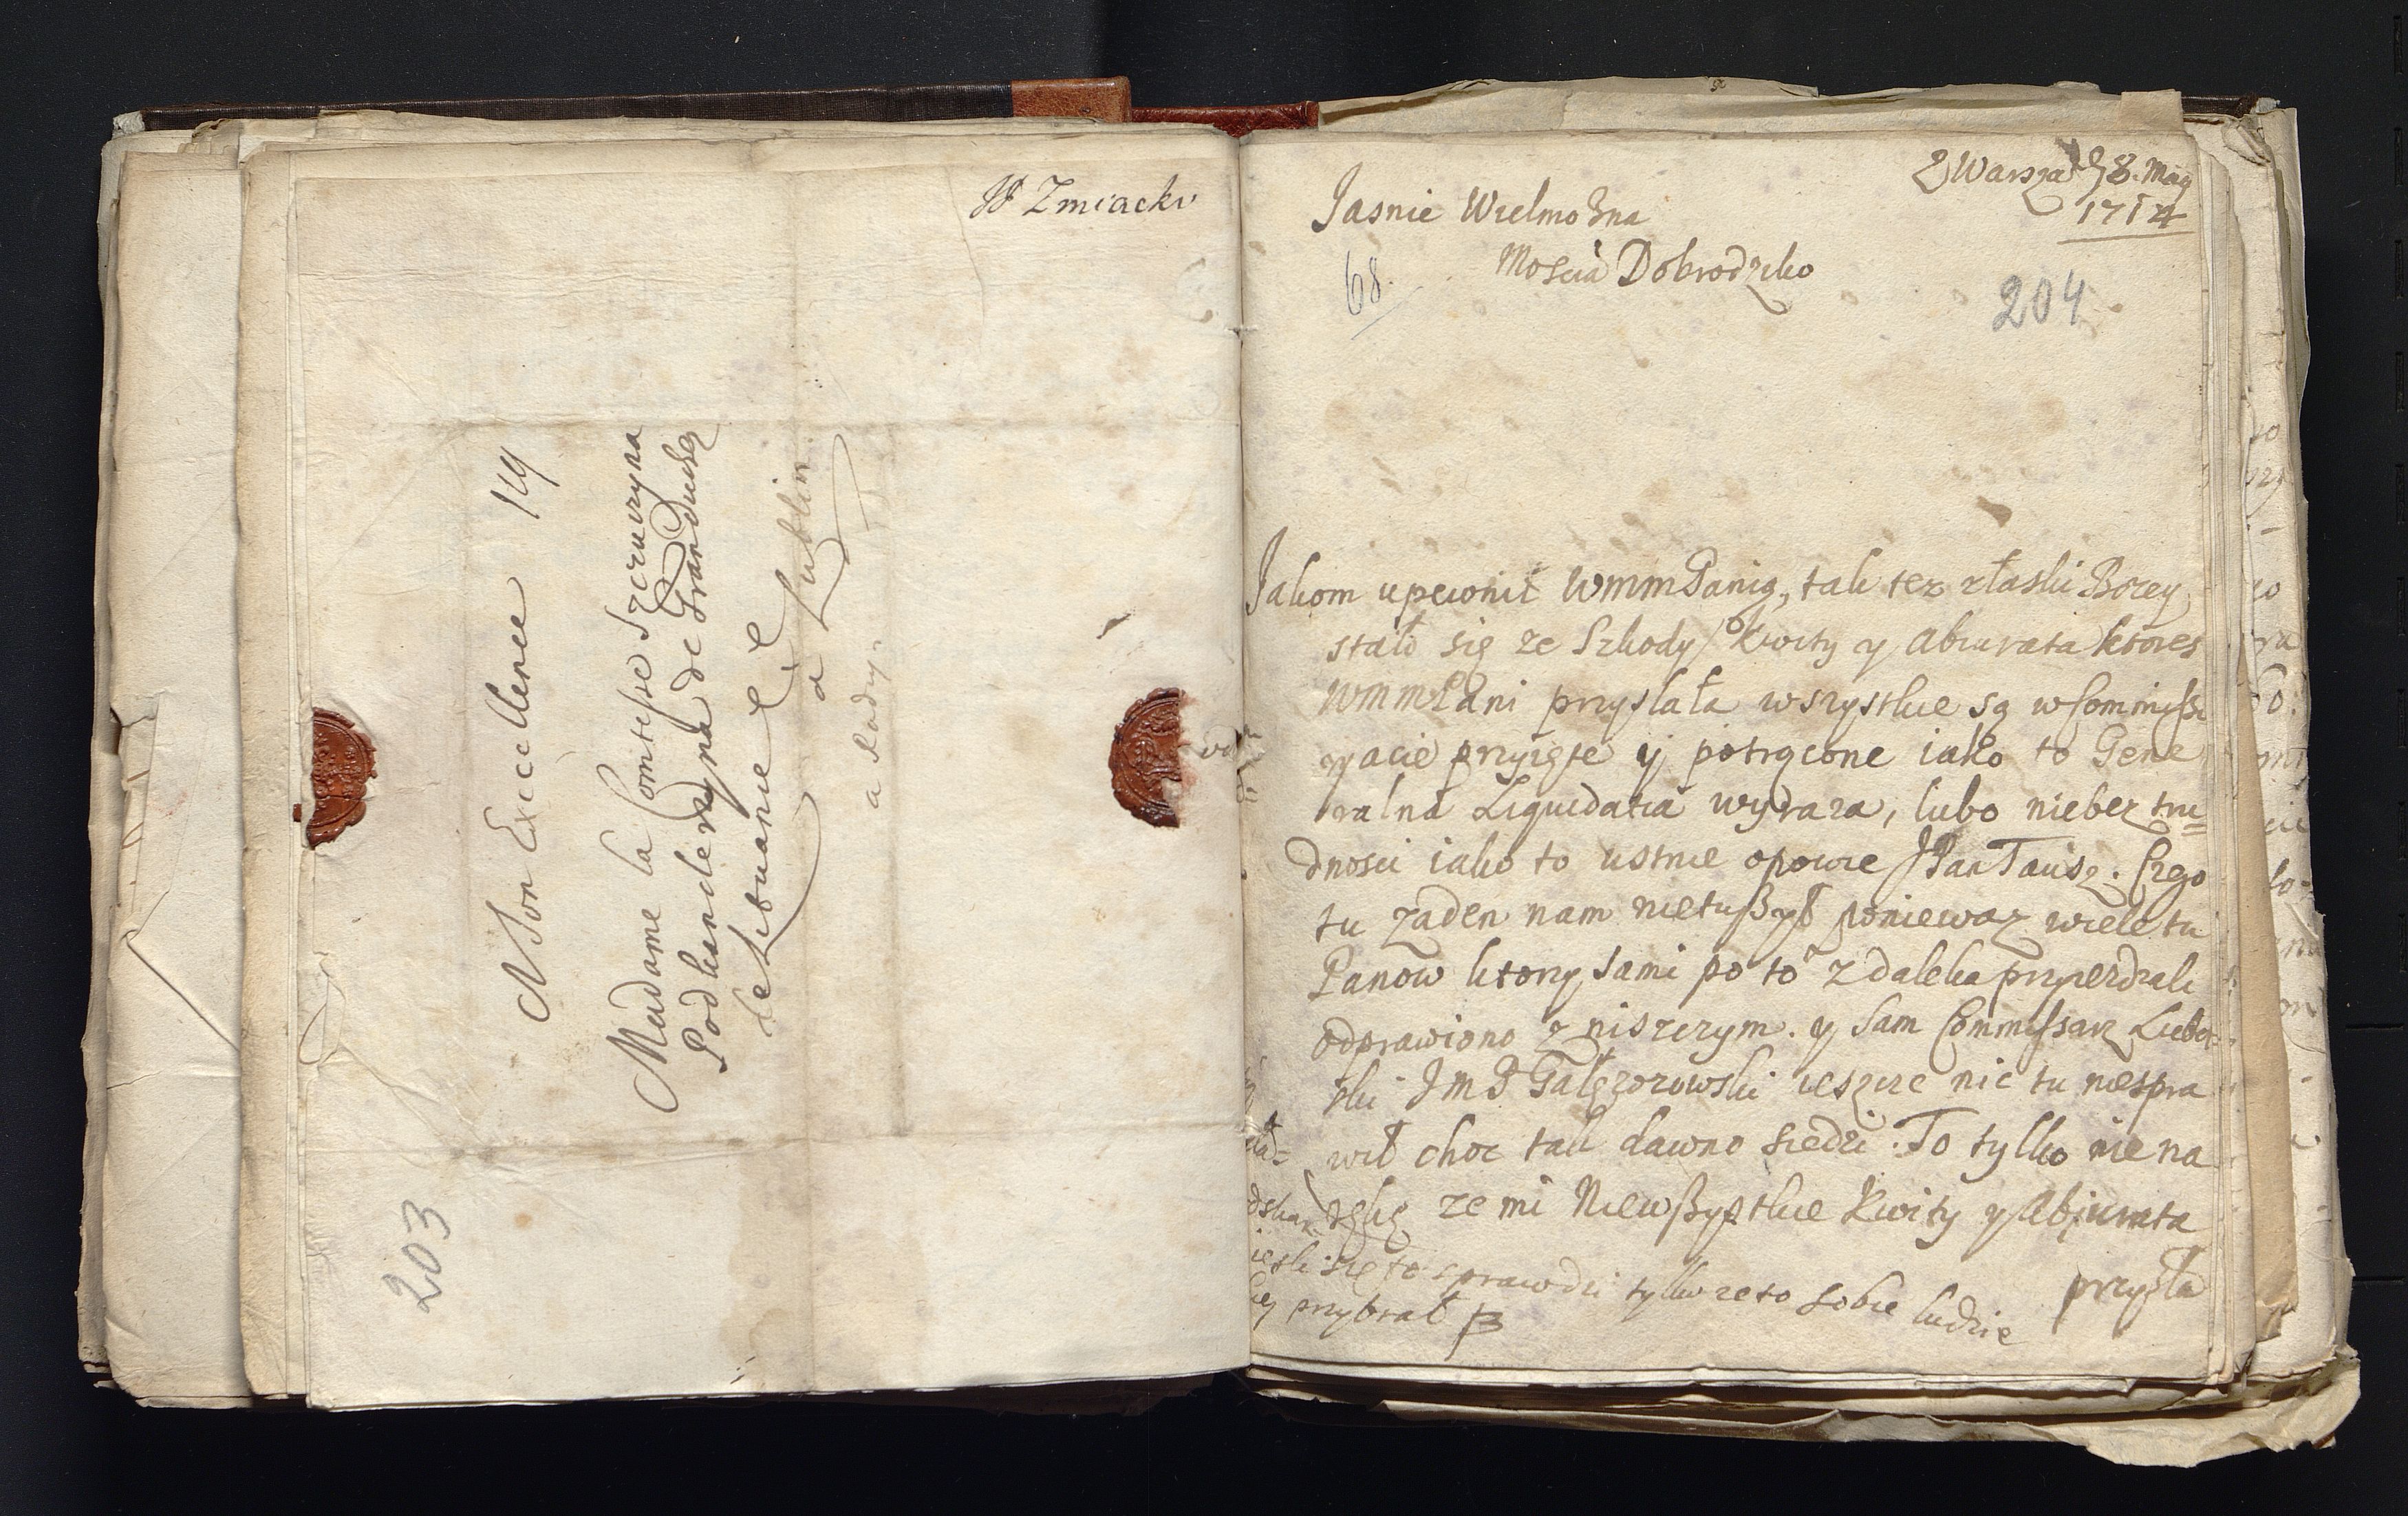 W Zmiacki
A Son Excellence 149
Madame la Comtesse Szczuczyna
Podkanclerzyna de Grand Duché
de Lituanie
a Lublin
a Radzyn
203
Z Warsza 8. May
1714
Jasnie Wielmozna
Moscia Dobrodziko
68.
204
Jakom upewnił WMMPanią, tak tez z łaski Bozey
stało się ze Szkody, Kwity y Abiurata ktores
WMMPani przysłała wszystkie są w Commissi
przyięte y potrącone iako to Gene
ralna Liquidatia wyraza, lubo niebez tru=
dnosci iako to ustnie opowie JPan Taūsz. Czego
tu zaden nam nietuszył poniewaz wiele tu
Panow ktorzy sami po to zdaleka przyiezdzali
odprawiono z niszczym. y Sam Commissarz Lubel=
ski JmP Gałęzowowski ieszcze nic tu niespra
wił choc tak dawno siedzi. To tylko nie na
ręke ze mi Niewszystkie Kwity y Abjurata
przysła
iesli się to sprawdzi tylko ze to sobie ludzie
przybrał